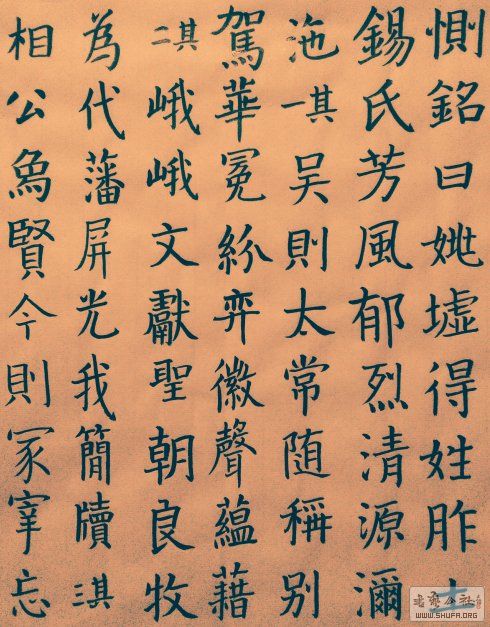 惻銘曰姚墟得姓胙土
錫氏芳風郁烈清源瀰
沲其一吴則太常随稱别
駕華冕紛弈徽聲蘊藉
其二峨峨文獻聖朝良牧
為代藩屏光我簡牘其三
相公象賢今則冢宰忘
書法公社
WWW.SHUFA.ORG